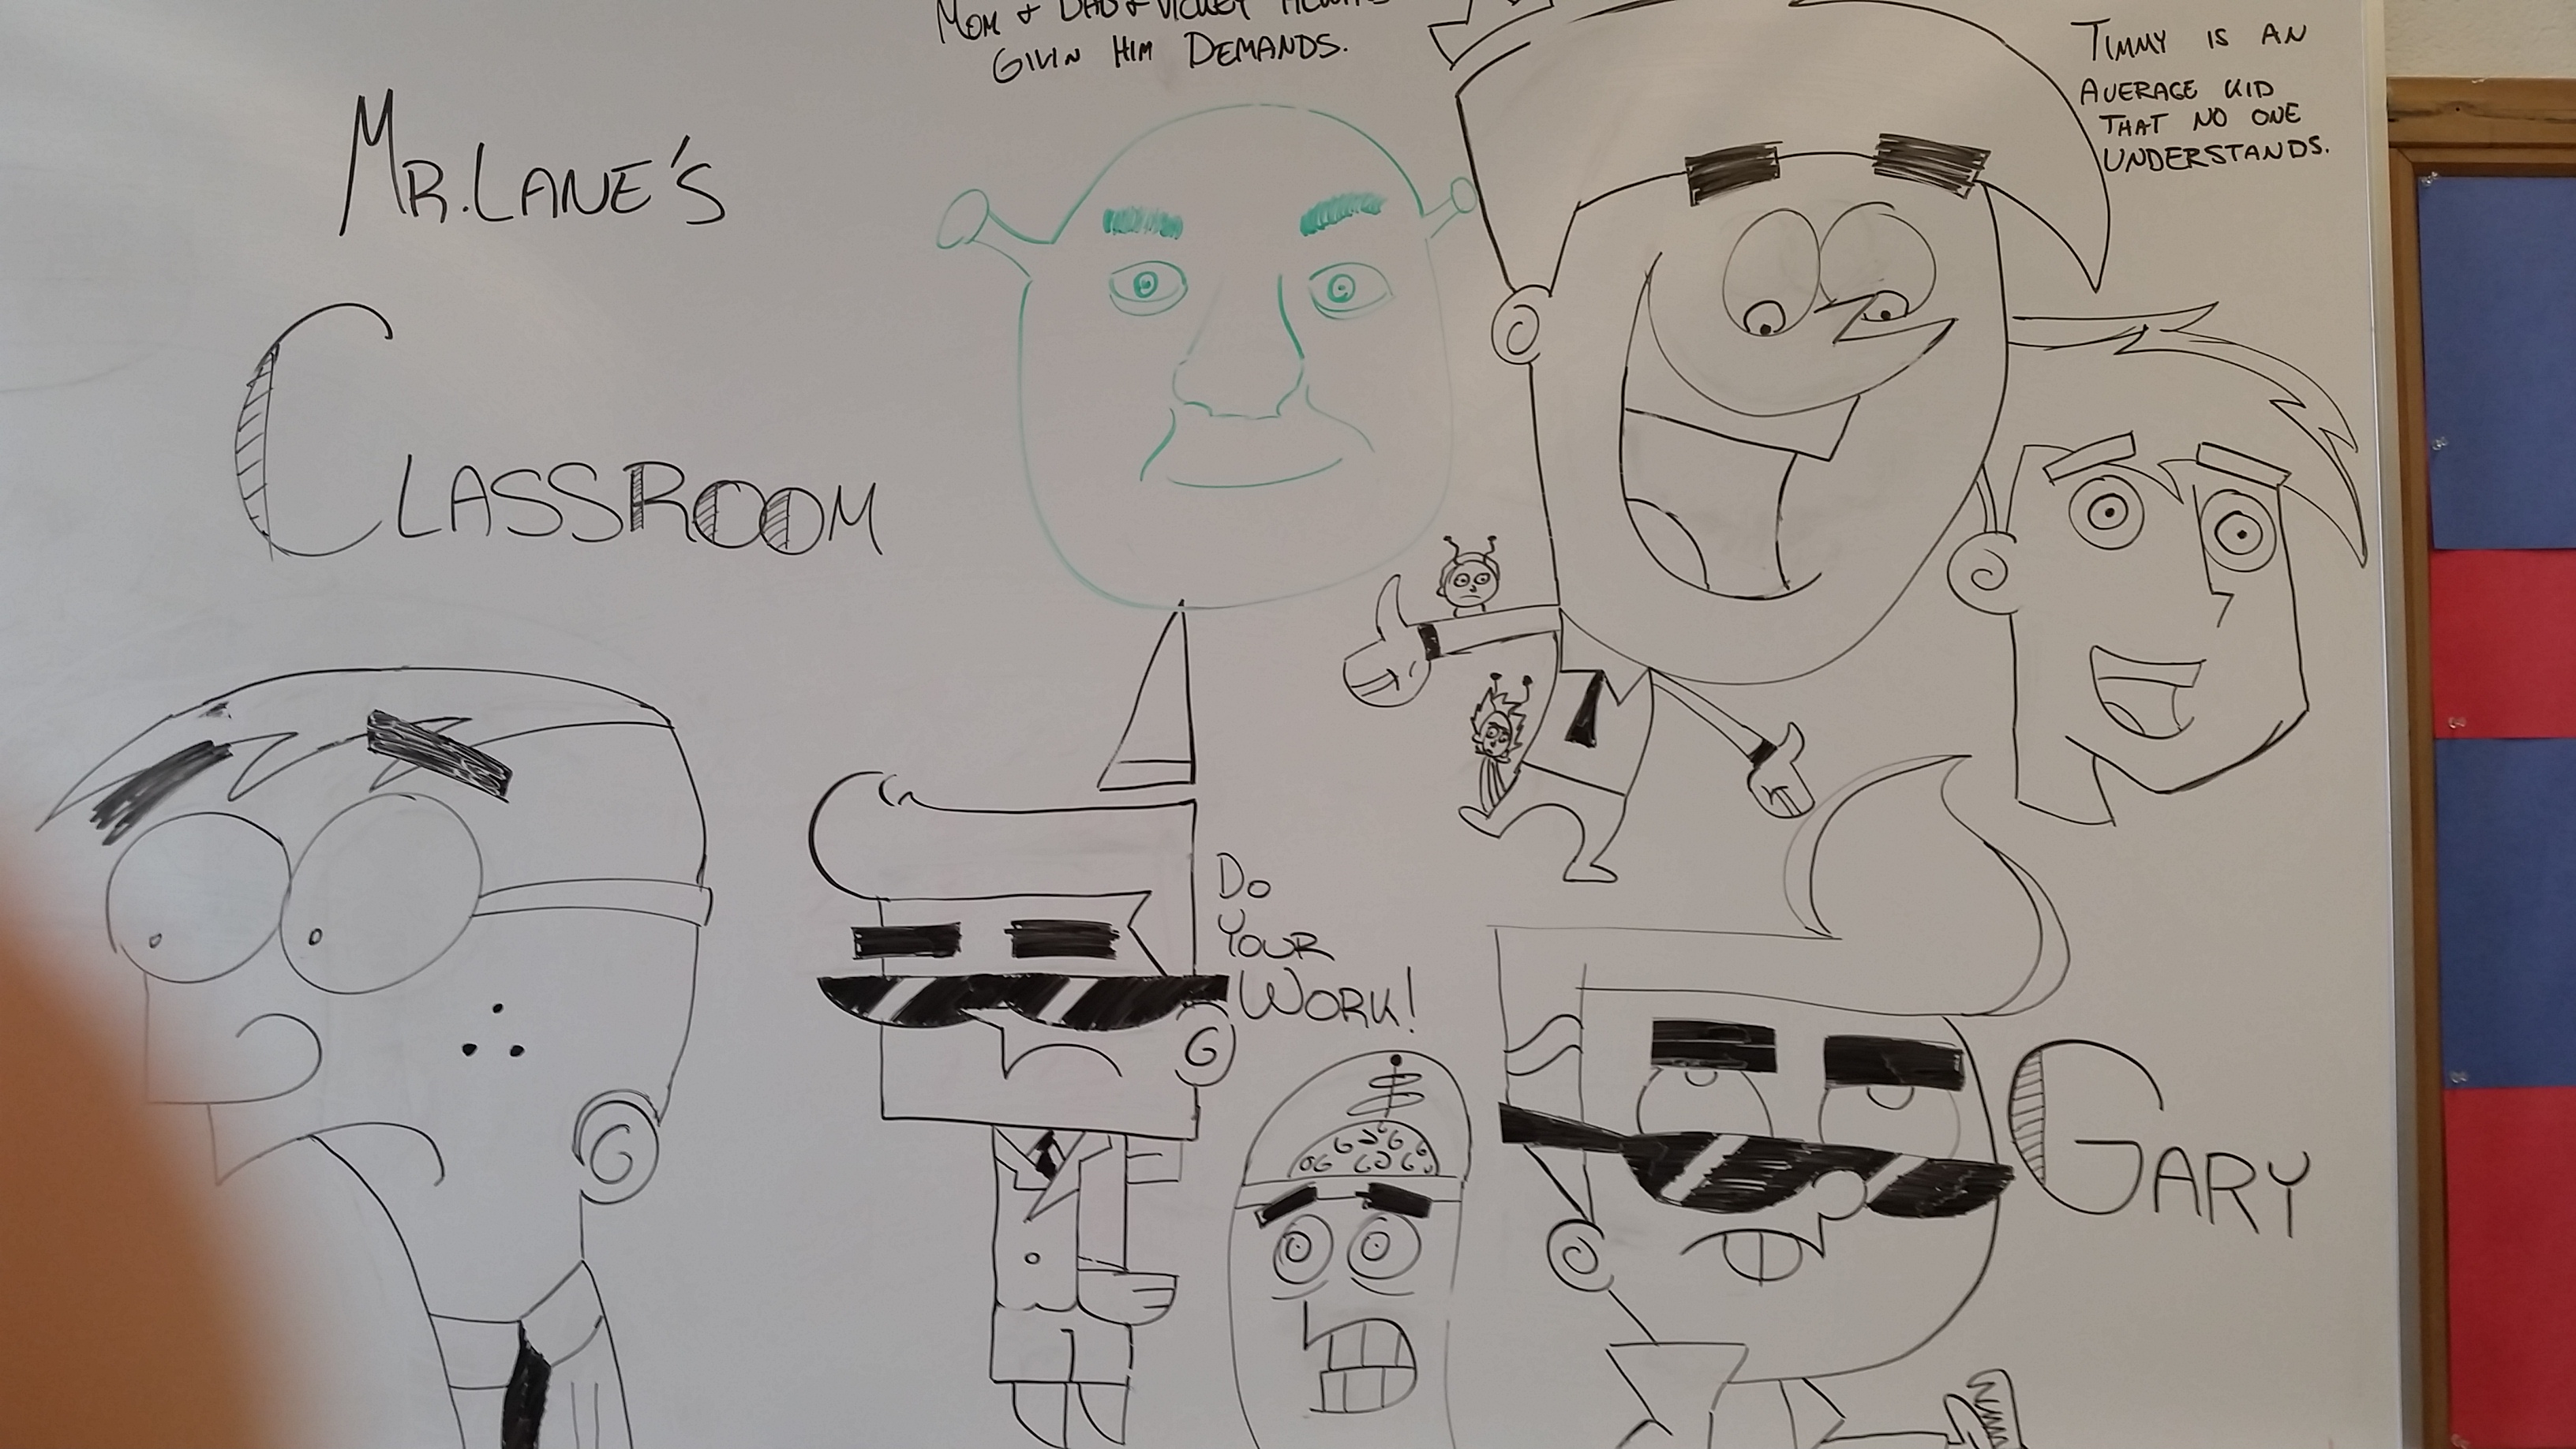 MOM & DAD & VICKEY
GIVIN HIM DEMANDS.
TIMMY IS AN
AVERAGE KID
THAT NO ONE
UNDERSTANDS.
MR. LANE'S
CLASSROOM
DO
YOUR
WORK!
GARY